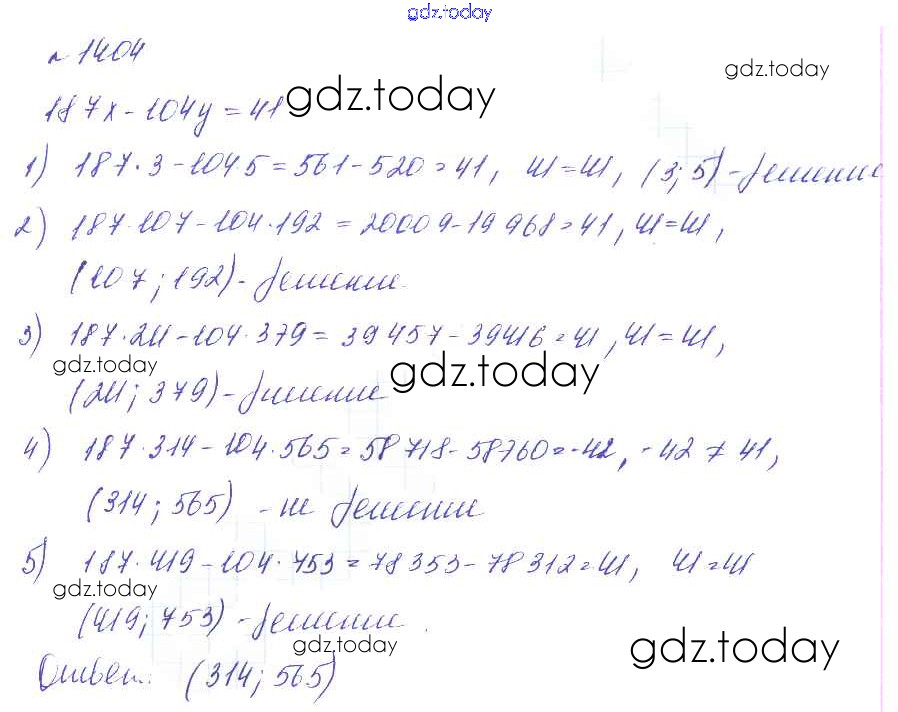 gdz.today
№ 1404
gdz.today
187x - 104y = 41 gdz.today
1) 187·3 - 104·5 = 561 - 520 = 41, 41 = 41, (3; 5) - решение
2) 187·107 - 104·192 = 20009 - 19968 = 41, 41 = 41,
(107; 192) - решение.
3) 187·211 - 104·379 = 39457 - 39416 = 41, 41 = 41,
gdz.today gdz.today
(211; 379) - решение
4) 187·314 - 104·565 = 58718 - 58760 = -42, -42 ≠ 41,
(314; 565) - не решение
5) 187·419 - 104·753 = 78353 - 78312 = 41, 41 = 41
gdz.today
(419; 753) - решение.
gdz.today gdz.today
Ответ: (314; 565)